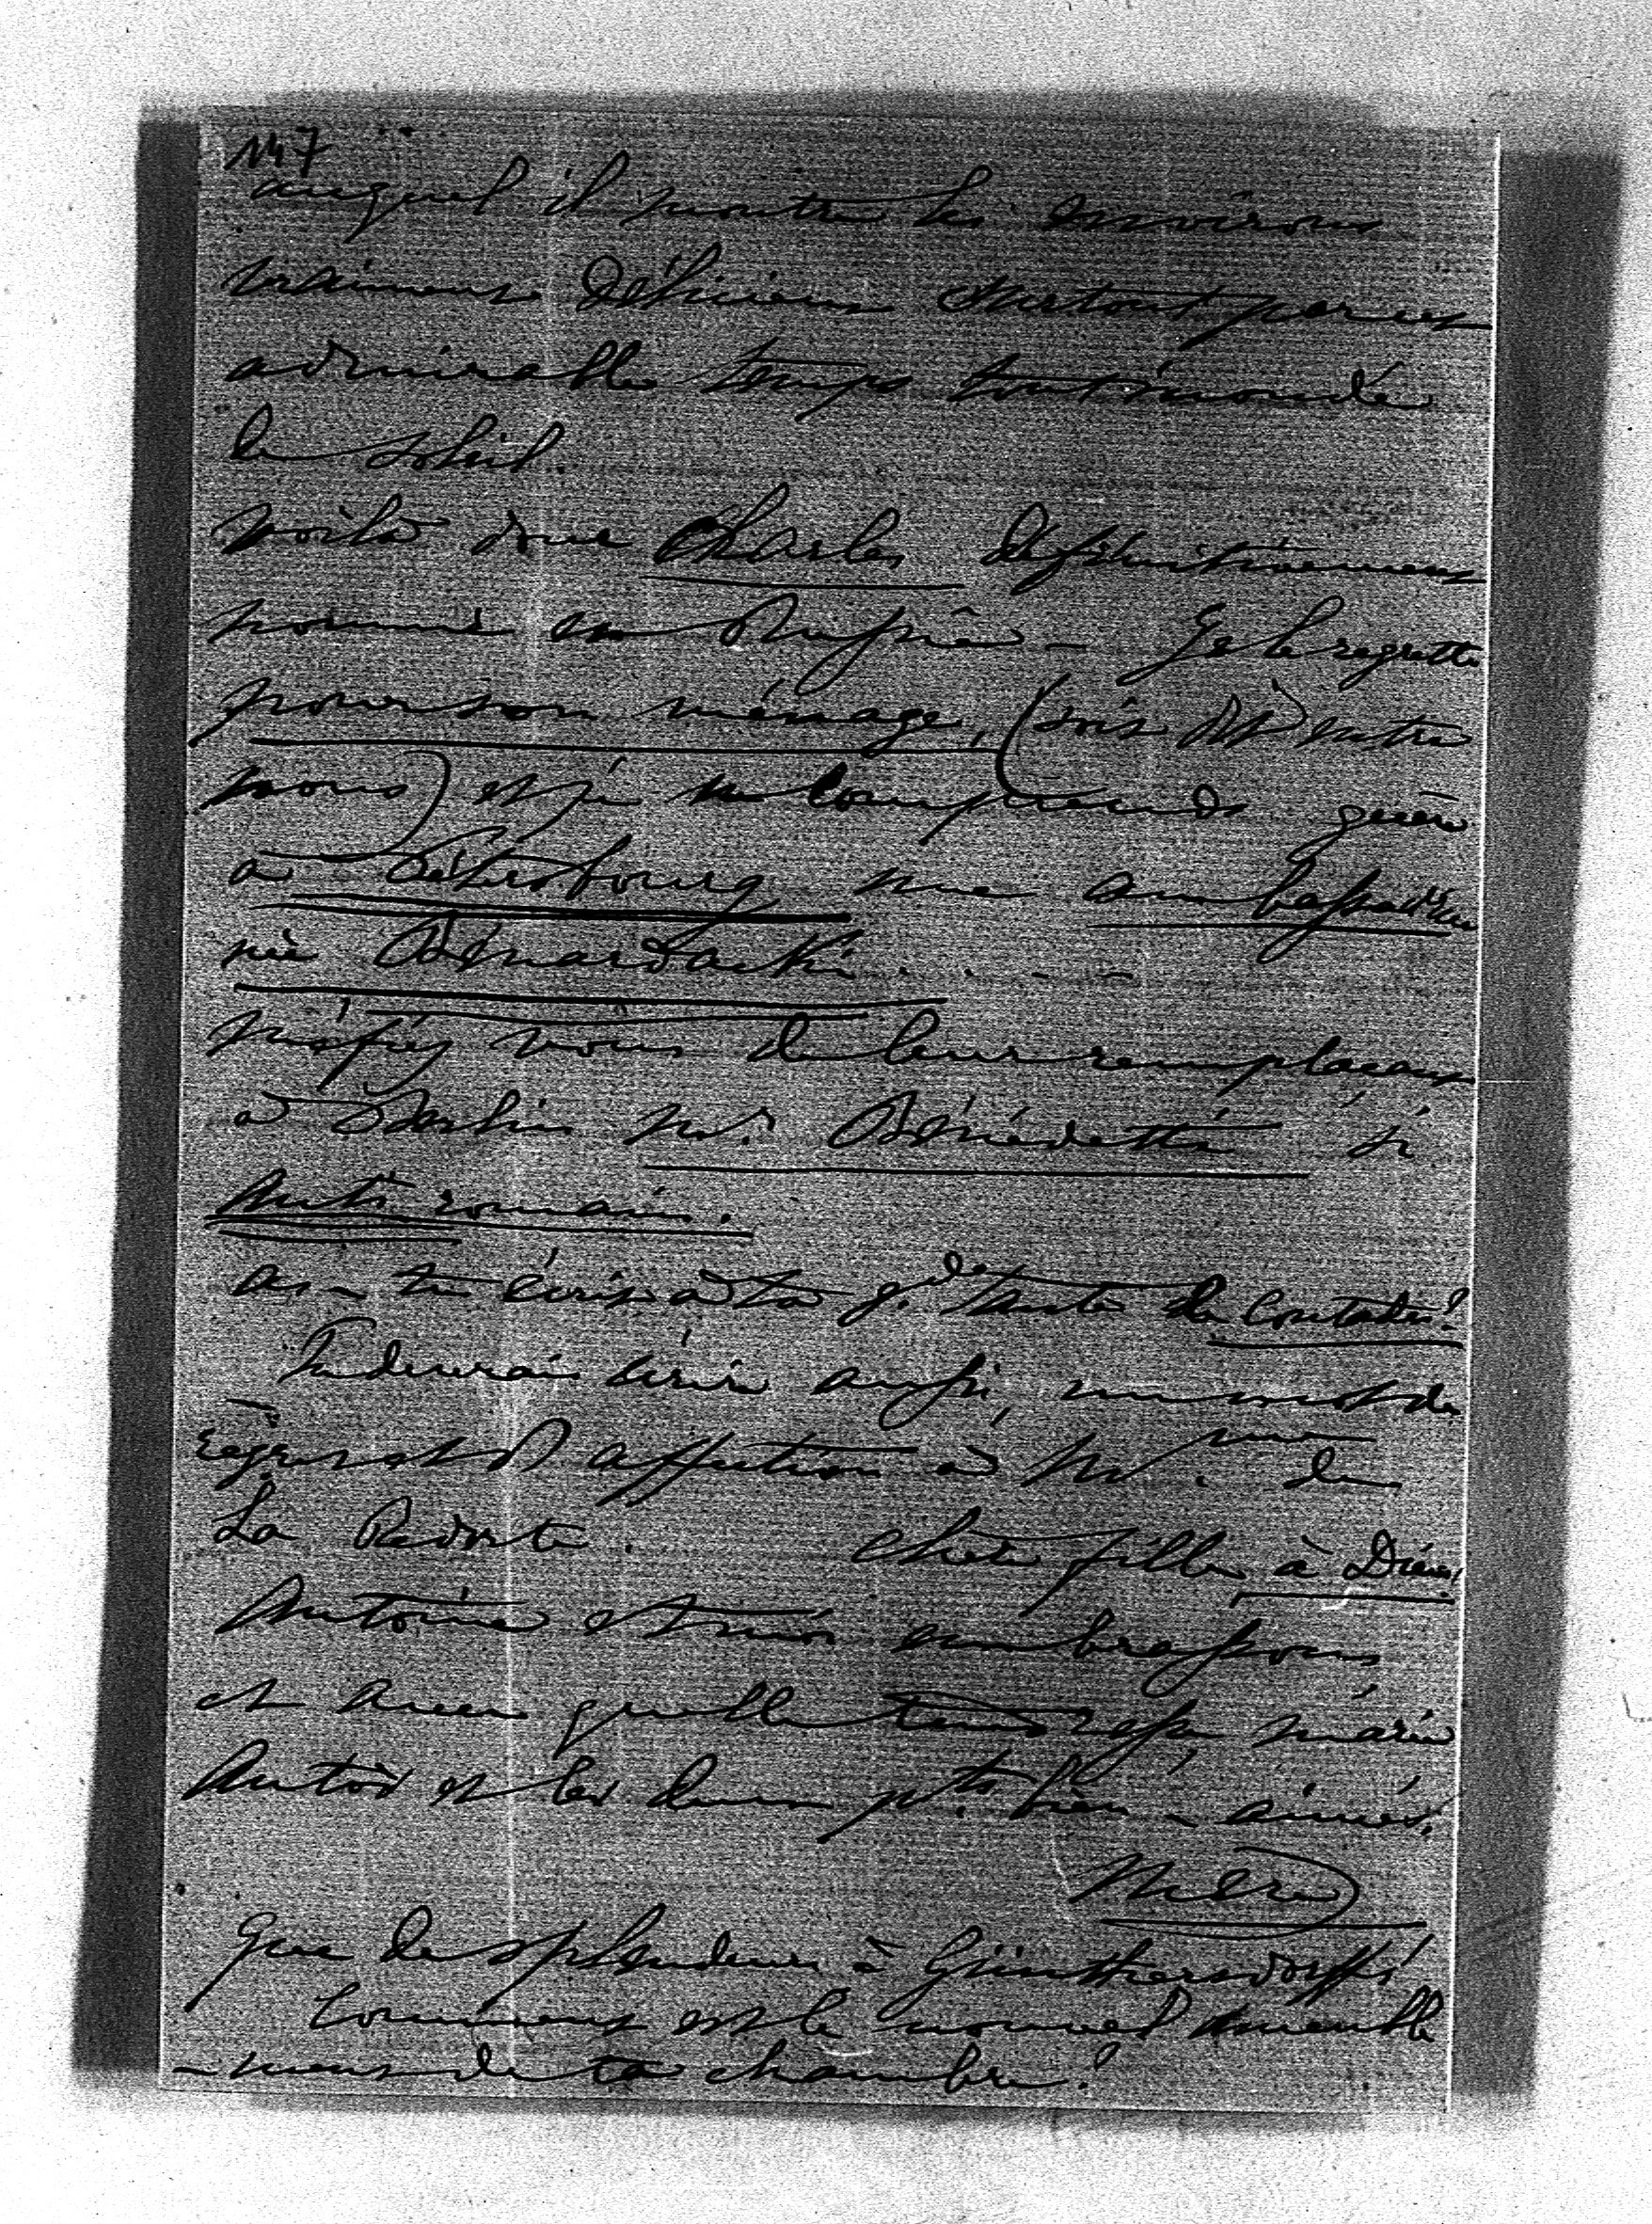 147
auquel il montre les environs
vraiment délicieux surtout par cet
admirable temps tout inondé
de soleil.
voilà donc Charles définitivement
nommé en Russie – Je le regrette
pour son ménage, (soit dit entre
nous) et je ne comprends guère
à Pétersbourg une ambassadrice
née Bénardacki . . . . –
méfiez vous de leur remplaçant
à Berlin Mr. Bénédetti si
Anti-romain.
as-tu écrit à ta gde tante de Contades?
Tu devrais écrire aussi un mot de
regret et d'affection à Mme de
La Redorte. Chère fille, à Dieu,
Antoine et moi embrassons
et avec quelle tendresse, Marie
Antoi et les deux pts bien-aimés.
Mère
Que de splendeurs à Günthersdorff!
Comment est le nouvel ameuble
-ment de ta chambre?